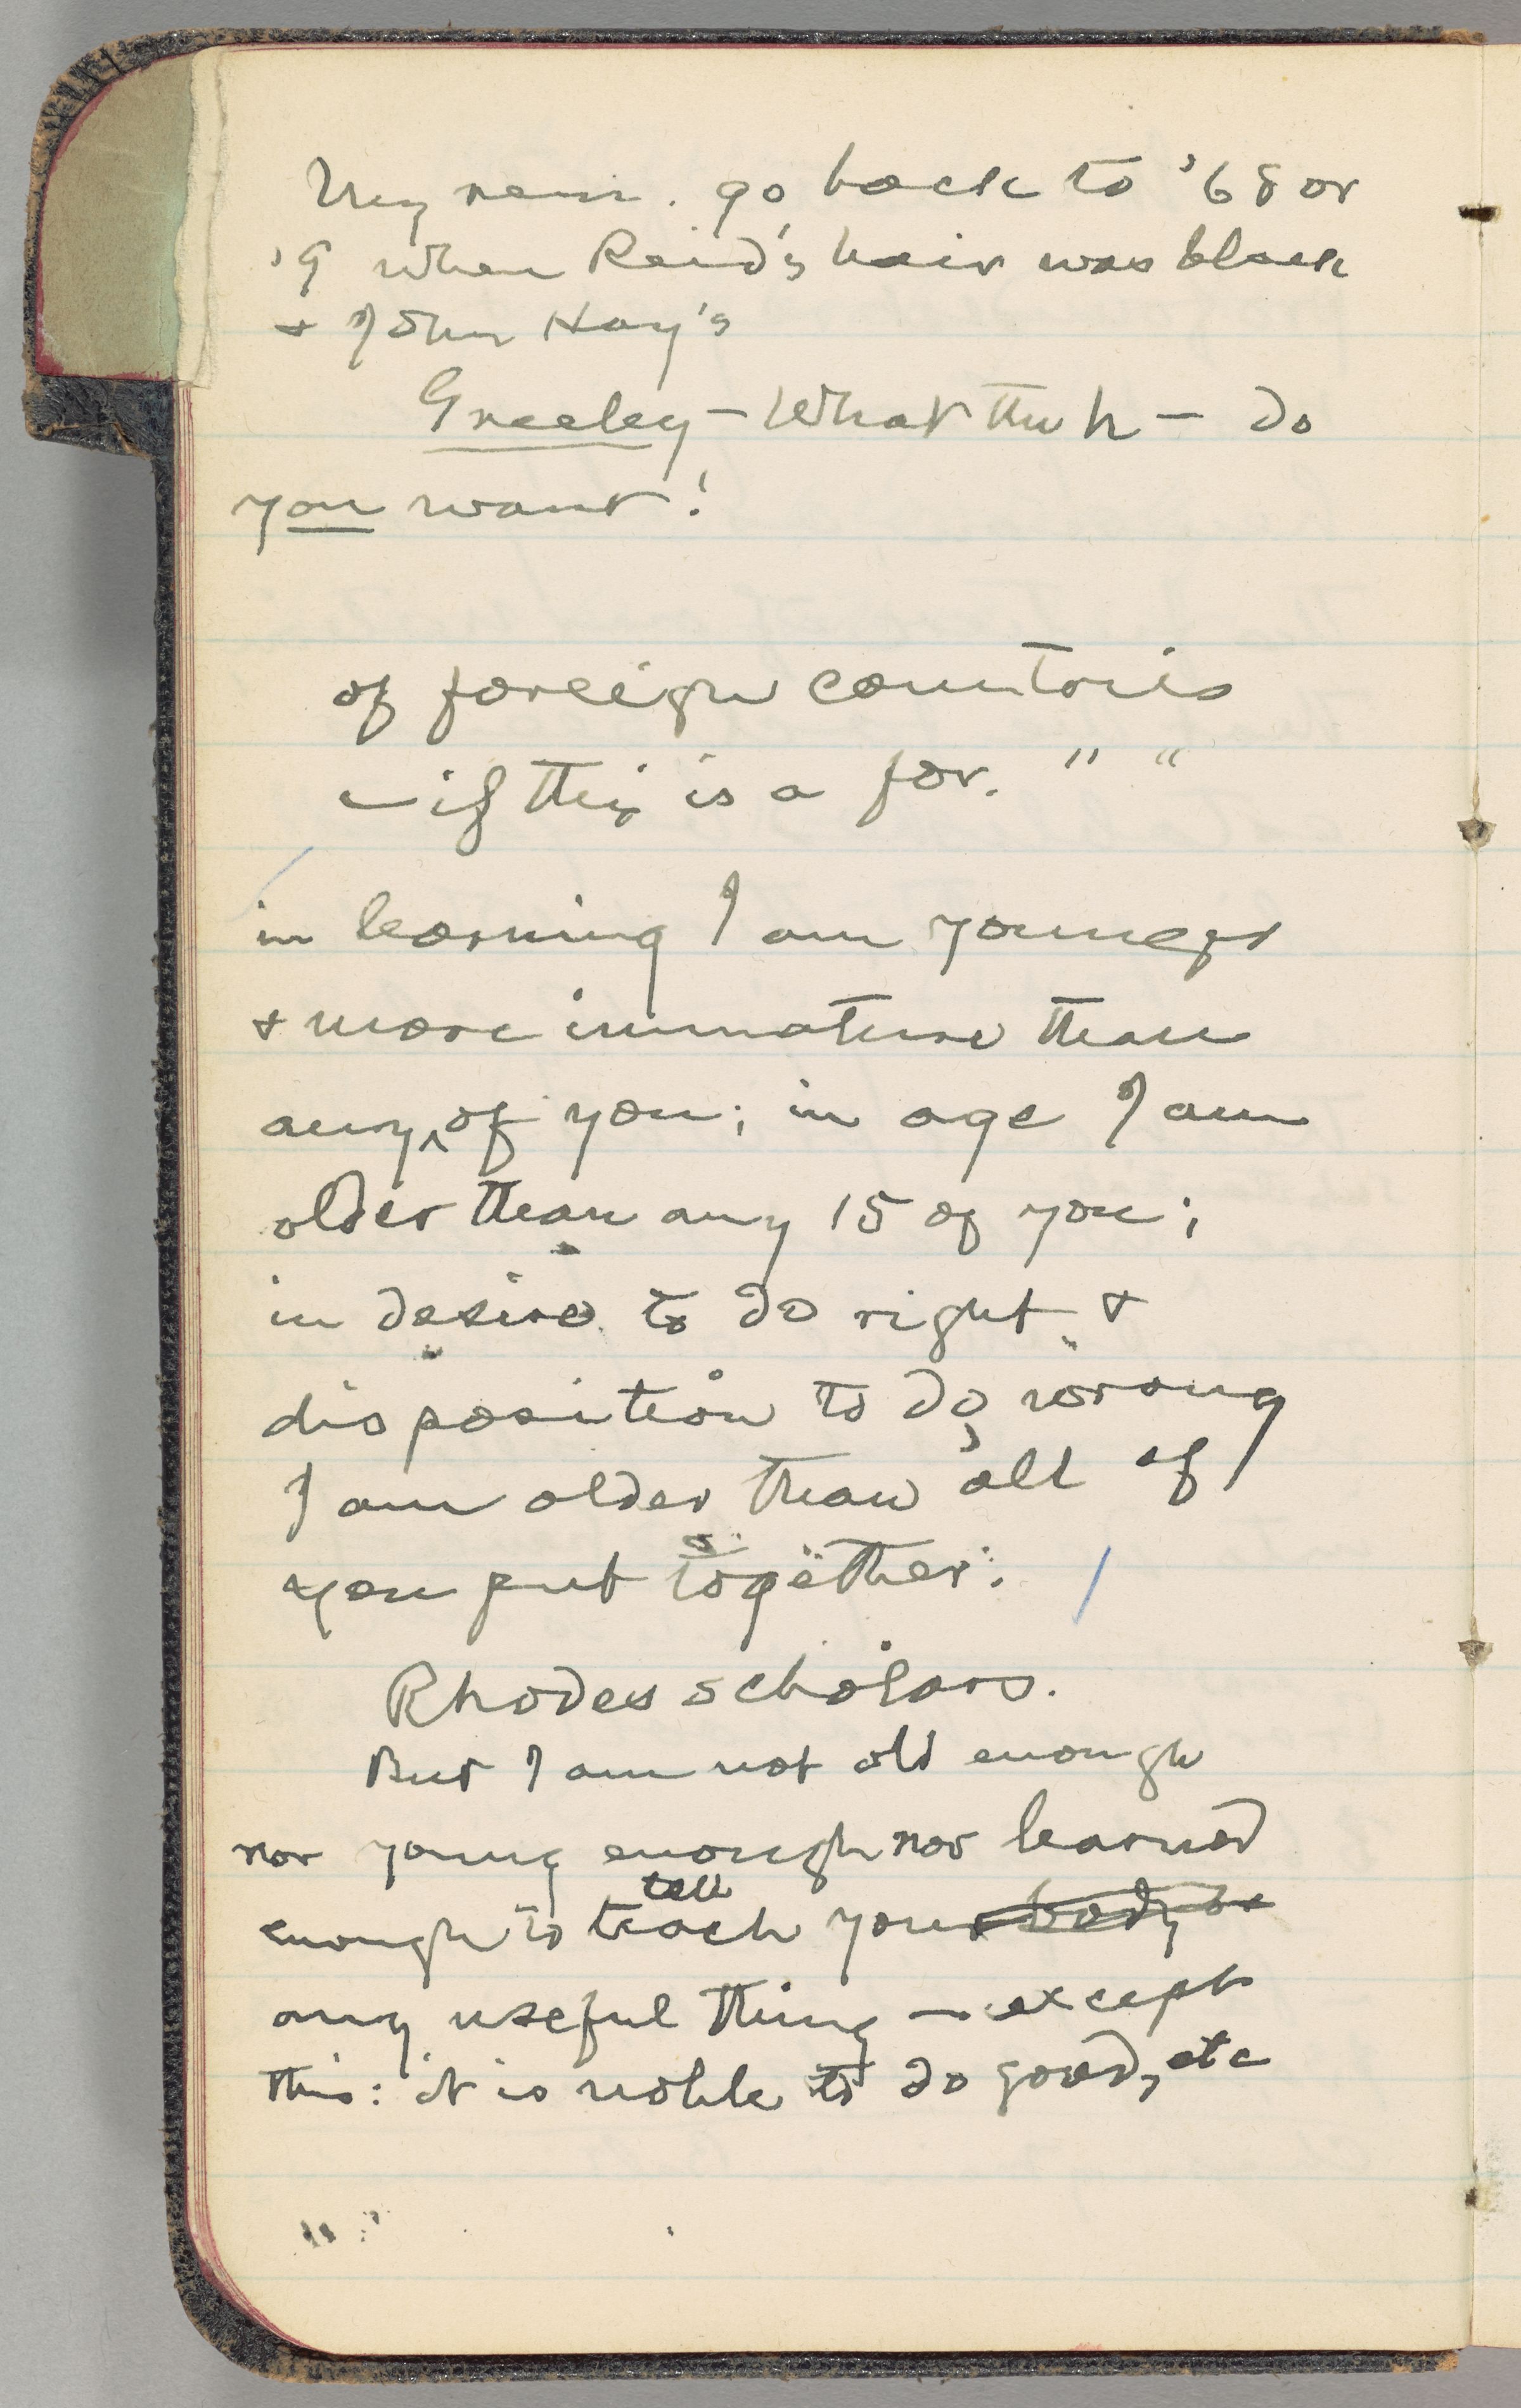 My rem. go back to '68 or
'9 when Reid's hair was black
& John Hay's
Greeley — What the h — do
you want!
of foreign countries
— if this is a for. " "
in learning I am younger
& more immature than
any of you; in age I am
older than any 15 of you;
in desire to do right &
disposition to do wrong
I am older than all of
you put together.
Rhodes scholars.
But I am not old enough
nor young enough nor learned
tell
enough to teach your body
any useful thing — except
this: it is noble to do good, etc